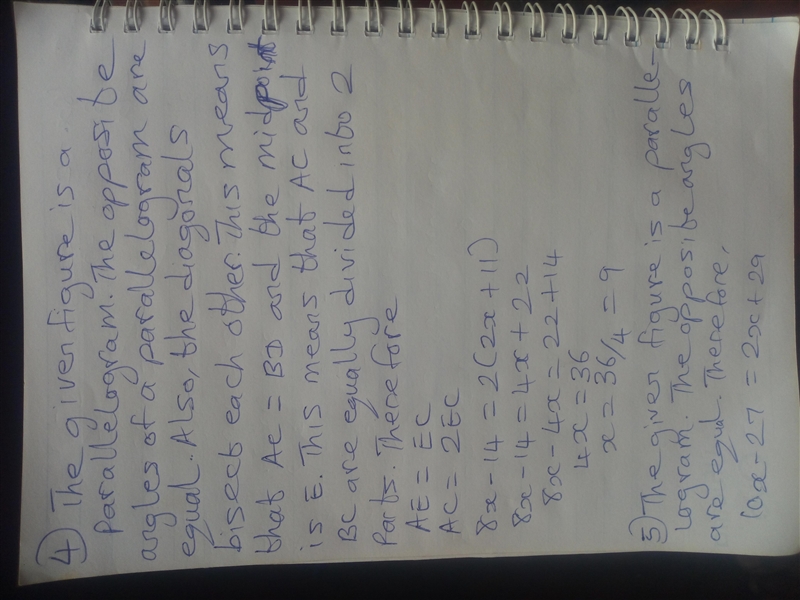 4) The given figure is a
parallelogram. The opposite
angles of a parallelogram are
equal. Also, the diagonals
bisect each other. This means
that AC = BD and the midpoint
is E. This means that AC and
BC are equally divided into 2
parts. Therefore
AE = EC
AC = 2EC
8x - 14 = 2(2x + 11)
8x - 14 = 4x + 22
8x - 4x = 22 + 14
4x = 36
x = 36/4 = 9
5) The given figure is a paralle-
logram. The opposite angles
are equal. Therefore,
10x - 27 = 2x + 29